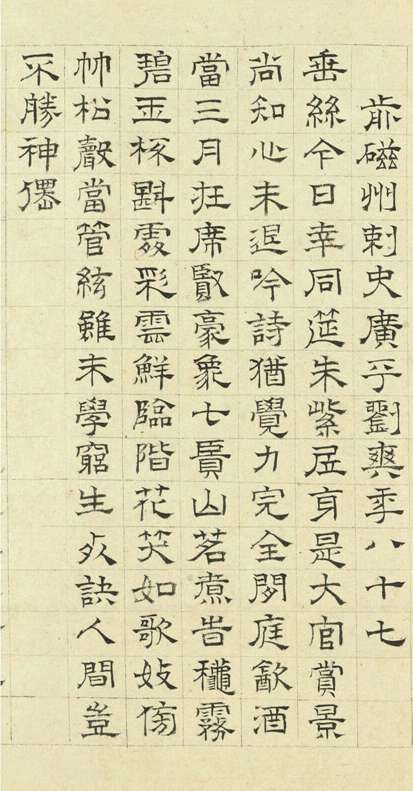 前磁州刺史廣平劉爽年八十七
垂絲今日幸同筵朱紫居身是大官賞景
尚知心未退吟詩猶覺力完全閒庭飲酒
當三月狂席賢豪象七賢山茗煮旹龝霧
碧玉杯斟處彩雲鮮臨階花笑如歌妓傍
竹松聲當管絃雖未學窮生死訣人間豈
不勝神僊